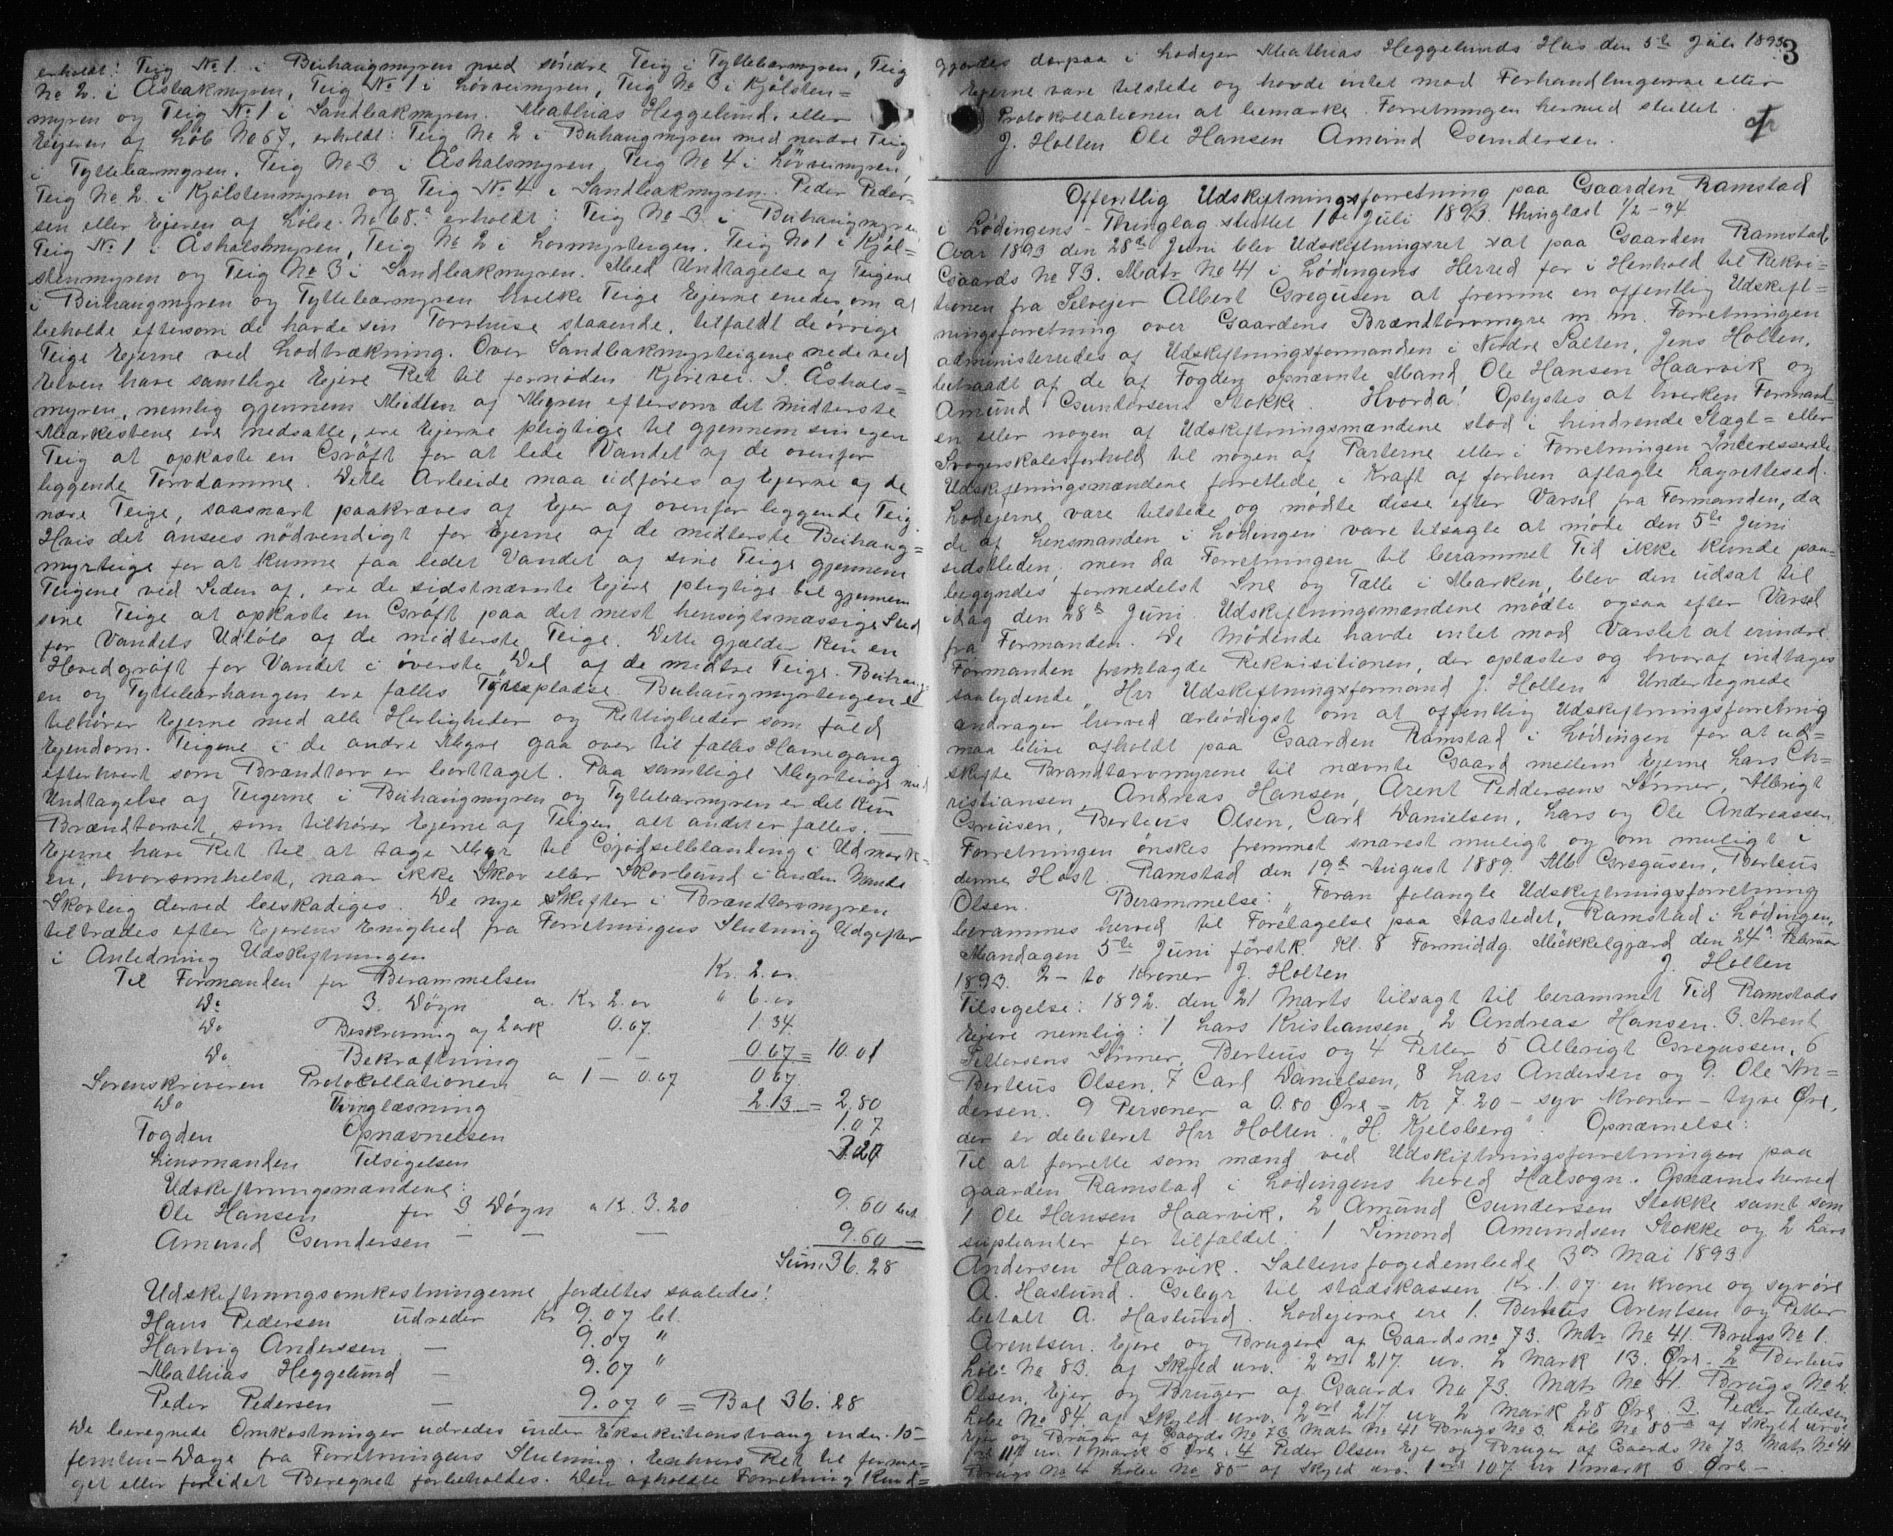 erholdt: Teig No 1. i Buhaugmyren med söndre Teig i Tyttebærmyren, Teig
No 2. i Åsbakmyren, Teig No 1 i Lövveimyren, Teig No 3 i Kjölsten=
myren og Teig No 1 i Sandbakmyren. Mathias Heggelund. eller
Ejeren af Löb No 67, erholdt: Teig No 2 i Buhaugmyren med nordre Teig
i Tyttebærmyren, Teig No 3 i Åshalsmyren, Teig No 4 i Lövveimyren,
Teig No 2. i Kjölstenmyren og Teig No 4 i Sandbakmyren. Peder Peder-
sen eller Ejeren af Löbe No 68.a erholdt: Teig No 3. i Buhaugmyren
Teig No 1 i Åshalsmyren, Teig No 2 i Lovmyrteigen. Teig No 1 i Kjöl-
stenmyren og Teig No 3 i Sandbakmyren. Med Undtagelse af Teigene
i Buhaugmyren og Tyttebærmyren hvilke Teige Ejerne enedes om at
beholde eftersom de havde sin Torvhuse staaende, tilfaldt de övrige
Teige Ejerne ved Lodtrækning. Over Sandbakmyrteigene nede ved
Elven have samtlige Ejere Ret til fornöden Kjörevei. I Åshals=
myren, nemlig gjennem Midten af Myren eftersom det midterste
Markestene ere nedsatte, ere Ejerne pligtige til gjennem sin egen
Teig at opkaste en Gröft for at lede Vandet af de ovenfor
liggende Torvdamme. Dette Arbeide maa udföres af Ejerne af de
nære Teige, saasnart paakræves af Ejer af ovenfor liggende Teig.
Hvis det ansees nödvendigt for Ejerne af de midterste Buhaug=
myrteige for at kunne faa ledet Vandet af sine Teige gjennem
Teigene ved Siden af, ere de sidstnævnte Ejere pligtige til gjennem
sine Teige at opkaste en Gröft paa det mest hensigtsmæssige Sted
for Vandets Udlöb af de midterste Teige. Dette gjælder kun en
Hovedgröft for Vandet i överste Del af de midtre Teige. Buhaug-
en og Tyttebærhaugen ere fælles Törrepladse. Buhaugmyrteigene
tilhörer Ejerne med alle Herligheder og Rettigheder som fuld
Ejendom. Teigene i de andre Myre gaa over til fælles Havnegang
efterhvert som Brændtorv er borttaget. Paa samtlige Myrteige med
Undtagelse af Teigerne i Buhaugmyren og Tyttebærmyren er det kun
Brændtorvet, som tilhörer Ejerne af Teigen alt andet er fælles. —
Ejerne have Ret til at tage Myr til Gjödselblanding i Udmark-
en, hvorsomhelst, naar ikke Skov eller Skovbund i anden Mands
Skovteig derved beskadiges. De nye Skifter i Brændtorvmyren
tiltrædes efter Ejerens Enighed fra Forretningens Slutning Udgifter
i Anledning Udskiftningen
Til Formanden for Berammelsen Kr. 2. ...
Do 3. Dögn a. Kr 2. ... " 6. ...
Do Beskrivning af 2 ark 0.67. 1.34.
Do Bekræftning — — 0.67 = 10.01
Sorenskriveren Protokollationen a 1 — 0.67 0.67.
Do Thinglæsning 2.13 = 2,80
Fogden Opnævnelsen 1.07
Lensmanden Tilsigelsen 3.20
Udskiftningsmændene:
Ole Hansen for 3 Dögn a Kr. 3.20 9.60 bet.
Amund Gundersen — — — 9.60 —
Sum. 36.28
Udskiftningsomkostningerne fordeltes saaledes:
Hans Pedersen udreder Kr 9.07 bet.
Hartvig Anderssen — 9.07 "
Mathias Heggelund — 9.07 "
Peder Pedersen — 9.07 " = Bal 36.28
De beregnede Omkostninger udredes under Eksekutionstvang inden 15-
femten-Dage fra Forretningens Slutning. Enhvers Ret til forme-
get eller forlidet Beregnet forbeholdes. Den afholdte Forretning kund=
gjordes derpaa i Lodejer Mathias Heggelunds Hus den 5te Juli 1893. 3
Ejerne vare tilstede og havde intet mod Forhandlingerne eller
Protokollationen at bemærke. Forretningen hermed sluttet.
J. Holten Ole Hansen Amund Gundersen.
Offentlig Udskiftningsforretning paa Gaarden Ramstad
i Lödingens Thinglag sluttet 1ste Juli 1893. thinglæst 1/2 - 94
Aar 1893 den 28de Juni blev Udskiftningsret sat paa Gaarden Ramstad
Gaards No 73. Matr No 41 i Lödingens Herred for i Henhold til Rekvi-
tionen fra Selvejer Albert Gregusen at fremme en offentlig Udskift=
ningsforretning over Gaardens Brændtorvmyre m. m. Forretningen
administreredes af Udskiftningsformanden i Nordre Salten, Jens Holten,
betraadt af de af Fogden opnævnte Mænd Ole Hansen Haarvik og
Amund Gundersens Stokke. Hvorda! Oplystes at hverken Formand-
en eller nogen af Udskiftningsmændene stod i hindrende Slægt= eller
Svogerskabsforhold til nogen af Parterne eller i Forretningen Interesserede
Udskiftningsmændene forrettede i Kraft af forhen aflagte Lagrettesed.
Lodejerne vare tilstede og mödte disse efter Varsel fra Formanden, da
de af Lensmanden i Lödingen vare tilsagte at möde den 5te Juni
sidstleden, men da Forretningen til berammet Tid ikke kunde paa-
begyndes formedelst Sne og Tælle i Marken, blev den udsat til
idag den 28de Juni Udskiftningsmændene mödte ogsaa efter Varsel
fra Formanden. De Mödende havde intet mod Varslet at erindre.
Formanden fremlagde Rekvisitionen, der oplæstes og hvoraf indtages
saalydende „Hrr Udskiftningsformand J. Holten" Undertegnede
andrager herved ærbödigst om at offentlig Udskiftningsforretning
maa blive afholdt paa Gaarden Ramstad i Lödingen for at ud=
skifte Brændtorvmyrene til nævnte Gaard mellem Ejerne Lars Ch-
ristiansen, Andreas Hansen, Arent Peddersens Sönner, Albrigt
Greusen, Berteus Olsen, Carl Danielsen, Lars og Ole Andreassen
Forretningen önskes fremmet snarest muligt og om muligt i
denne Höst. Ramstad den 19de August 1889. Alb Gregusen, Berteus
Olsen. Berammelse: „Foran forlangte Udskiftningsforretning
berammes herved til Foretagelse paa Aastedet, Ramstad i Lödingen,
Mandagen 5te Juni förstk. Kl. 8 Formiddg. Möklelgjærd den 24de Februar
1893. 2 - to Kroner J. Holten J. Holten
Tilsigelse: 1892. den 21 Marts tilsagt til berammet Tid Ramstads
Ejere nemlig: 1 Lars Kristiansen, 2 Andreas Hansen. 3. Arent
Pettersens Sönner, Berteus og 4 Petter 5 Alberigt Gregussen, 6
Berteus Olsen, 7 Carl Danielsen, 8 Lars Andersen og 9. Ole An=
dersen. 9 Personer a 0.80 Øre = Kr 7.20 - syv Kroner - tyve Øre,
der er debiteret Hrr Holten. „H. Kjelsberg" Opnævnelse:
Til at forrette som mænd ved Udskiftningsforretningen paa
gaarden Ramstad i Lödingens hered Halsogn. Opnævnes herved
1 Ole Hansen Haarvik, 2 Amund Gundersen Stokke samt som
supleanter for tilfældet: 1 Simond Amundsen Stokke og 2 Lars
Andersen Haarvik. Saltens fogedembede 3die Mai 1893
A. Haslund. Gebyr til stadskassen Kr. 1.07 en krone og syv öre
betalt A. Haslund. Lodejerne ere 1. Berteus Arentsen og Petter
Arentsen. Ejere og Brugere af Gaards no 73. Matr No 41. Brugs No 1.
Löbe No 83. af Skyld urv. 2 ort 217. uv. 2 Mark 13. Øre. 2 Berteus
Olsen, Ejer og Bruger af Gaards No 73. Matr No 41. Brugs No 2.
Löbe No 84. af Skyld urv. 2 ort 217 uv 2 mark 28 Øre. 3. Peder Pedersen
Ejer og Bruger af Gaards No 73 Matr No 41 Brugs No 3. Löb No 85a af Skyld urv.
1 ort 11 uv. 1 mark 6 Øre. 4 Peder Olsen Ejer og Bruger af Gaards No 73. Matr No 41
Brugs No 4 Löbe No 85 af Skyld urv. 1 ort 107 uv 1 mark 6 Øre —